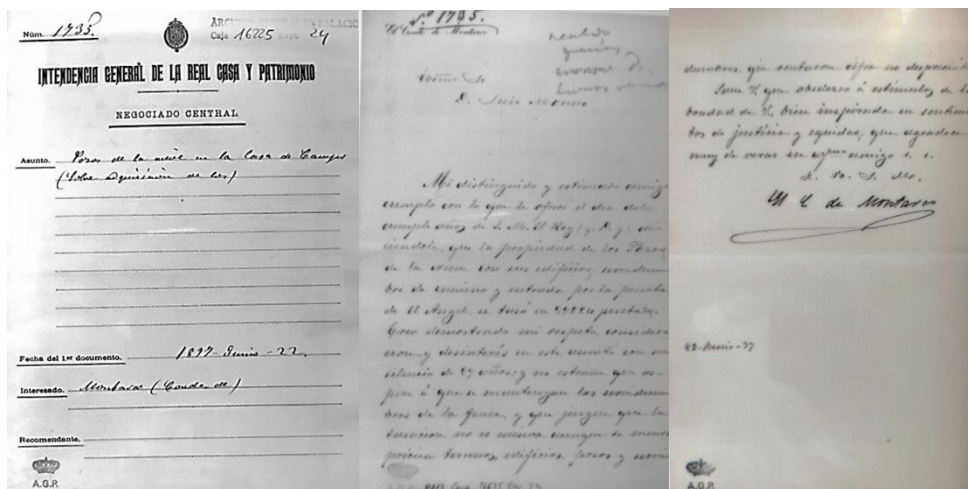 Núm. 1735.
ARCHIVO GENERAL DE PALACIO
Caja 16225 24
INTENDENCIA GENERAL DE LA REAL CASA Y PATRIMONIO
NEGOCIADO CENTRAL
Asunto. Pozos de la nieve en la Casa de Campo
(Sobre adquisición de los)
Fecha del 1.er documento. 1897-Junio-22.
Interesado. Montarco (Conde de)
Recomendante.
A.G.P.
Nº 1735.
El Conde de Montarco
D. Luis Moreno
Mi distinguido y estimado amigo
cumplo con lo que le ofrecí el día del
cumple años de S. M. el Rey (q. D. g.) di
ciéndole, que la propiedad de los Pozos
de la nieve con sus edificios, servidum
bre de camino y entrada por la puerta
de El Angel se tasó en pesetas.
Creo demostrado mi respeto, considera
cion y desinterés en este asunto con un
silencio de 29 años; y no estrañe que as-
pire á que se mantengan las servidum
bres de la finca, y que juzgue que la
tasacion no es escasa aunque se menos
precien terrenos, edificios, pozos y servi
A.G.P.
dumbres, que sentaron cifra no despreciable
Some V. que obedezca á estímulos de la
bondad de V. bien inspirada en sentimien
tos de justicia y equidad, que agradece
muy de veras su amigo s. s.
Q. B. S. M.
El C. de Montarco
22-Junio-97
A.G.P.